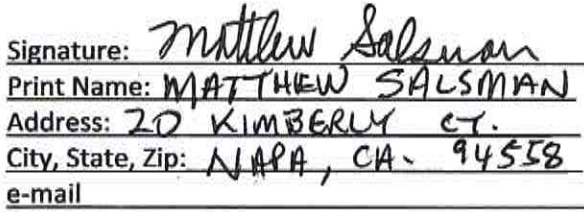 Signature: Matthew Salsman
Print Name: MATTHEW SALSMAN
Address: 20 KIMBERLY CT.
City, State, Zip: NAPA, CA. 94558
e-mail